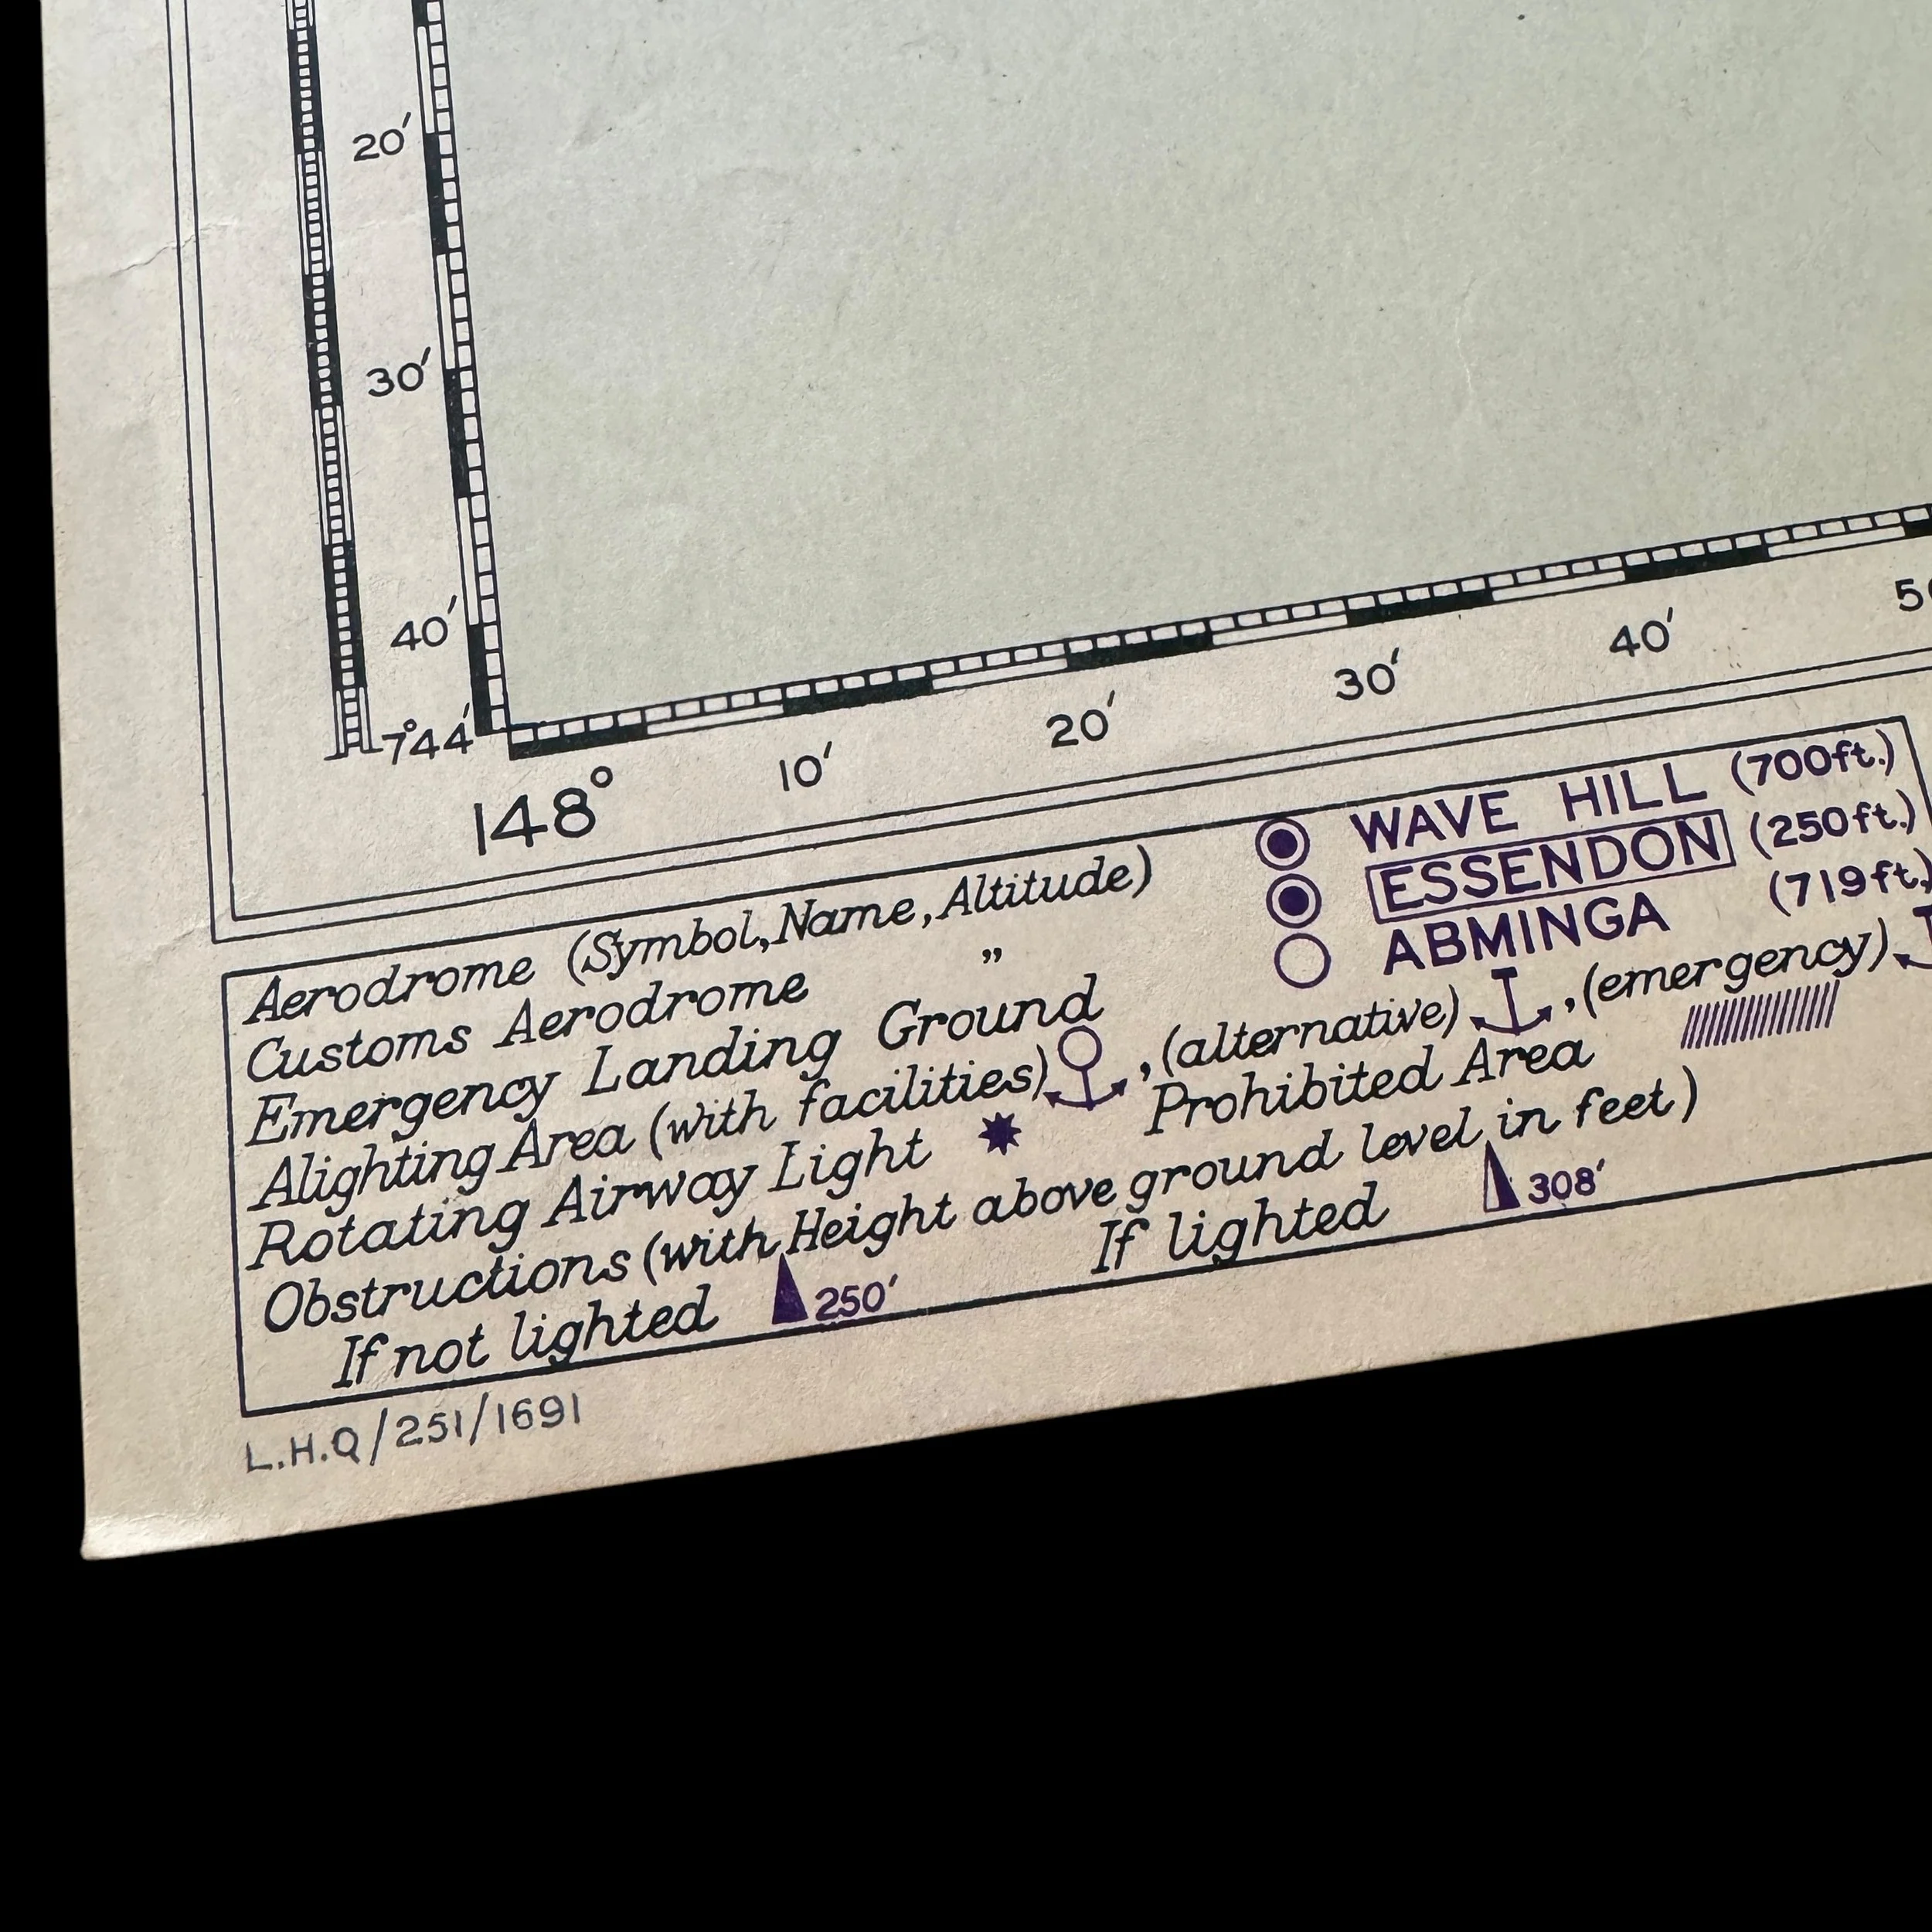 20′
30′
40′
7°44′
148°
10′
20′
30′
40′
Aerodrome (Symbol, Name, Altitude) WAVE HILL (700ft.)
Customs Aerodrome „ ESSENDON (250ft.)
Emergency Landing Ground ABMINGA (719ft.)
Alighting Area (with facilities) , (alternative) , (emergency)
Rotating Airway Light Prohibited Area
Obstructions (with Height above ground level in feet)
If not lighted 250′ If lighted 308′
L.H.Q/251/1691